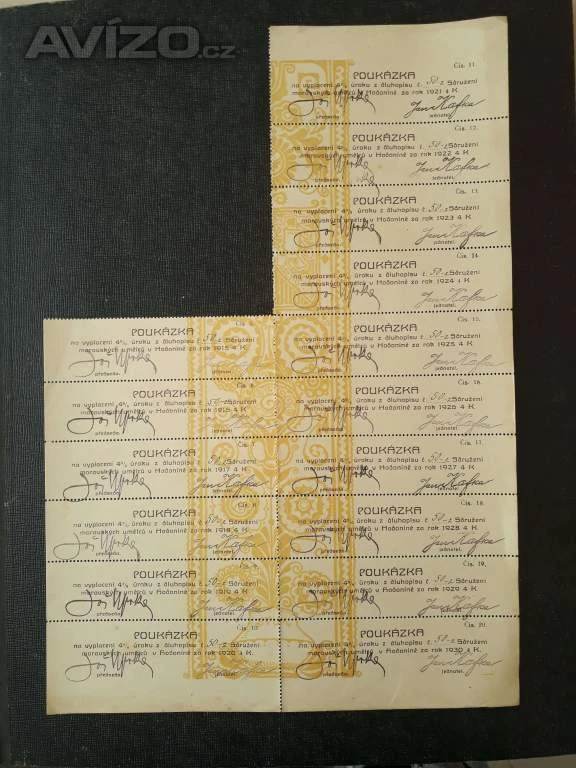 AVÍZO.cz
Čís. 11.
POUKÁZKA
na vyplacení 4% úroku z dluhopisu č. 50 - Sdružení
moravských umělců v Hodoníně za rok 1921 4 K
předseda.
Jan Kafka
jednatel.
Čís. 12.
POUKÁZKA
na vyplacení 4% úroku z dluhopisu č. 50 - Sdružení
moravských umělců v Hodoníně za rok 1922 4 K
předseda.
Jan Kafka
jednatel.
Čís. 13.
POUKÁZKA
na vyplacení 4% úroku z dluhopisu č. 50 - Sdružení
moravských umělců v Hodoníně za rok 1923 4 K
předseda.
Jan Kafka
jednatel.
Čís. 14.
POUKÁZKA
na vyplacení 4% úroku z dluhopisu č. 50 - Sdružení
moravských umělců v Hodoníně za rok 1924 4 K
předseda.
Jan Kafka
jednatel.
POUKÁZKA
na vyplacení 4% úroku z dluhopisu č. 50 - Sdružení
moravských umělců v Hodoníně za rok 1915 4 K
předseda.
Čís. 6.
POUKÁZKA
na vyplacení 4% úroku z dluhopisu č. 50 - Sdružení
moravských umělců v Hodoníně za rok 1916 4 K
předseda.
Čís. 7.
POUKÁZKA
na vyplacení 4% úroku z dluhopisu č. 50 - Sdružení
moravských umělců v Hodoníně za rok 1917 4 K
předseda.
Jan Kafka
jednatel.
Čís. 8.
POUKÁZKA
na vyplacení 4% úroku z dluhopisu č. 50 - Sdružení
moravských umělců v Hodoníně za rok 1918 4 K
předseda.
Jan Kafka
jednatel.
POUKÁZKA
na vyplacení 4% úroku z dluhopisu č. 50 - Sdružení
moravských umělců v Hodoníně za rok 1919 4 K
předseda.
Jan Kafka
jednatel.
Čís. 10.
POUKÁZKA
na vyplacení 4% úroku z dluhopisu č. 50 - Sdružení
moravských umělců v Hodoníně za rok 1920 4 K
předseda.
jednatel.
Čís. 15.
POUKÁZKA
na vyplacení 4% úroku z dluhopisu č. 50 - Sdružení
moravských umělců v Hodoníně za rok 1925 4 K
předseda.
Jan Kafka
jednatel.
Čís. 16.
POUKÁZKA
na vyplacení 4% úroku z dluhopisu č. 50 - Sdružení
moravských umělců v Hodoníně za rok 1926 4 K
předseda.
Jan Kafka
jednatel.
Čís. 17.
POUKÁZKA
na vyplacení 4% úroku z dluhopisu č. 50 - Sdružení
moravských umělců v Hodoníně za rok 1927 4 K
předseda.
Jan Kafka
jednatel.
Čís. 18.
POUKÁZKA
na vyplacení 4% úroku z dluhopisu č. 50 - Sdružení
moravských umělců v Hodoníně za rok 1928 4 K
předseda.
Jan Kafka
jednatel.
Čís. 19.
POUKÁZKA
na vyplacení 4% úroku z dluhopisu č. 50 - Sdružení
moravských umělců v Hodoníně za rok 1929 4 K
předseda.
Jan Kafka
jednatel.
Čís. 20.
POUKÁZKA
na vyplacení 4% úroku z dluhopisu č. 50 - Sdružení
moravských umělců v Hodoníně za rok 1930 4 K
předseda.
Jan Kafka
jednatel.